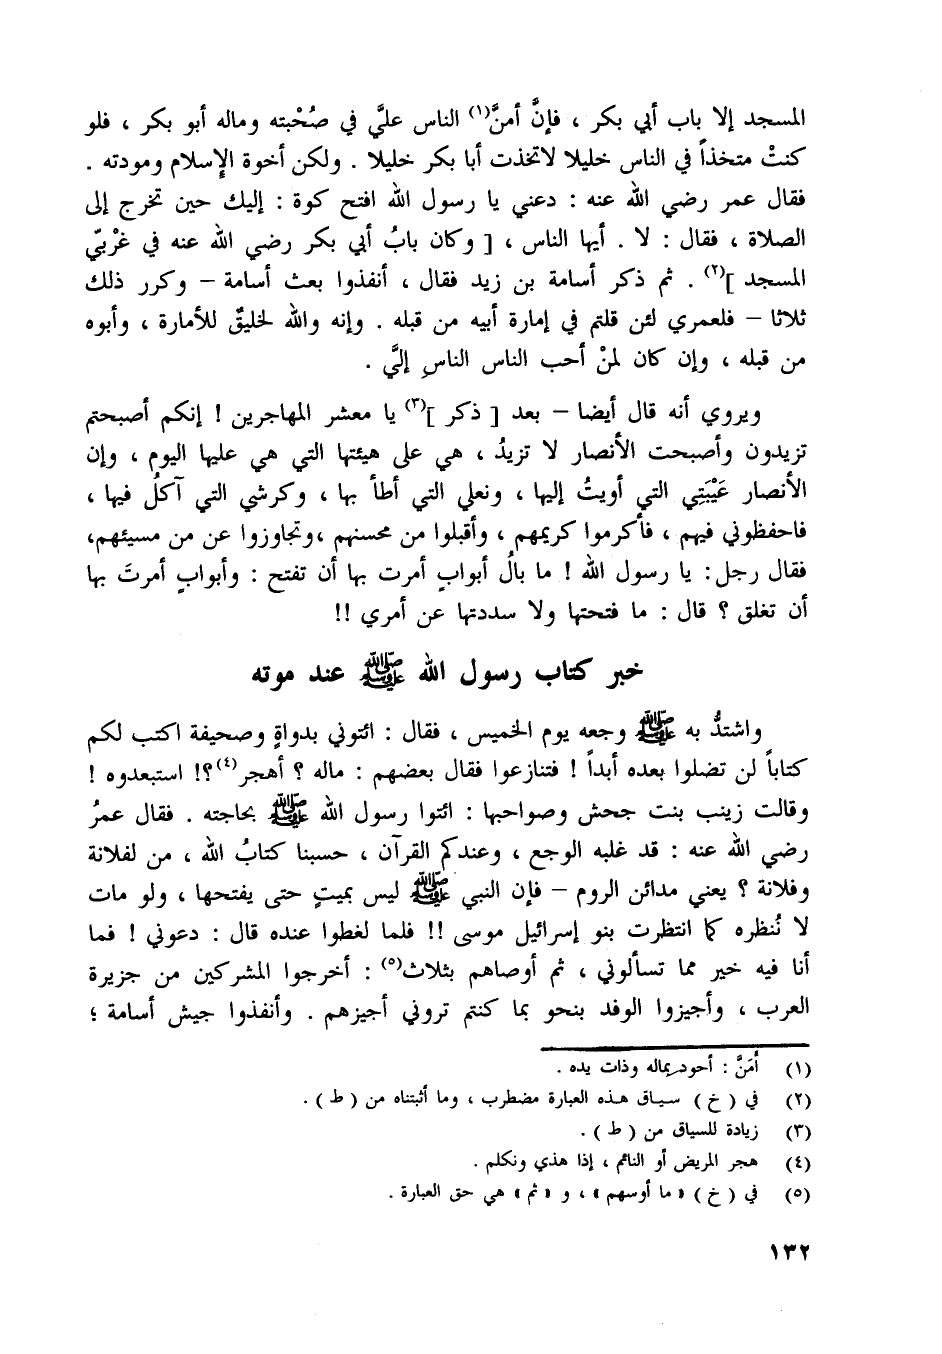 المسجد إلا باب أبي بكر ، فإنَّ أمنَّ(١) الناس عليَّ في صُحْبته وماله أبو بكر ، فلو
كنتْ متخذاً في الناس خليلا لاتخذت أبا بكر خليلا . ولكن أخوة الإسلام ومودته .
فقال عمر رضي الله عنه : دعني يا رسول الله افتح كوة : إليك حين تخرج إلى
الصلاة ، فقال : لا . أيها الناس ، [ وكان بابُ أبي بكر رضي الله عنه في غرْبيّ
المسجد ](٢) . ثم ذكر أسامة بن زيد فقال ، أنفذوا بعث أسامة – وكرر ذلك
ثلاثا – فلعمري لئن قلتم في إمارة أبيه من قبله . وإنه والله لخليقٌ للأمارة ، وأبوه
من قبله ، وإن كان لمنْ أحب الناس الناسِ إليَّ .
ويروي أنه قال أيضا – بعد [ ذكر ](٣) يا معشر المهاجرين ! إنكم أصبحتم
تزيدون وأصبحت الأنصار لا تزيدُ ، هي على هيئتها التي هي عليها اليوم ، وإن
الأنصار عَيْبَتِي التي أويتُ إليها ، ونعلي التي أطأ بها ، وكرشي التي آكلُ فيها ،
فاحفظوني فيهم ، فأكرموا كريمهم ، وأقبلوا من محسنهم ،وتجاوزوا عن من مسيئهم،
فقال رجل: يا رسول الله ! ما بالُ أبوابٍ أمرت بها أن تفتح : وأبوابٍ أمرتَ بها
أن تغلق ؟ قال : ما فتحتها ولا سددتها عن أمري !!
خبر كتاب رسول الله ﷺ عند موته
واشتدُّ به ﷺ وجعه يوم الخميس ، فقال : ائتوني بدواةٍ وصحيفة اكتب لكم
كتاباً لن تضلوا بعده أبداً ! فتنازعوا فقال بعضهم : ماله ؟ أهجر(٤)؟! استبعدوه !
وقالت زينب بنت جحش وصواحبها : ائتوا رسول الله ﷺ بحاجته . فقال عمرُ
رضي الله عنه : قد غلبه الوجع ، وعندكم القرآن ، حسبنا كتابُ الله ، من لفلانة
وفلانة ؟ يعني مدائن الروم – فإن النبي ﷺ ليس بميتٍ حتى يفتحها ، ولو مات
لا نُنظره كما انتظرت بنو إسرائيل موسى !! فلما لغطوا عنده قال : دعوني ! فما
أنا فيه خير مما تسألوني ، ثم أوصاهم بثلاث(٥) : أخرجوا المشركين من جزيرة
العرب ، وأجيزوا الوفد بنحو بما كنتم تروني أجيزهم . وأنفذوا جيش أسامة ؛
(١) أَمَنَّ : أجود بماله وذات يده .
(٢) في ( خ ) سياق هذه العبارة مضطرب ، وما أثبتناه من ( ط ) .
(٣) زيادة للسياق من ( ط ) .
(٤) هجر المريض أو النائم ، إذا هذي وتكلم .
(٥) في ( خ ) « ما أوسهم » ، و « ثم » هي حق العبارة .
١٣٢